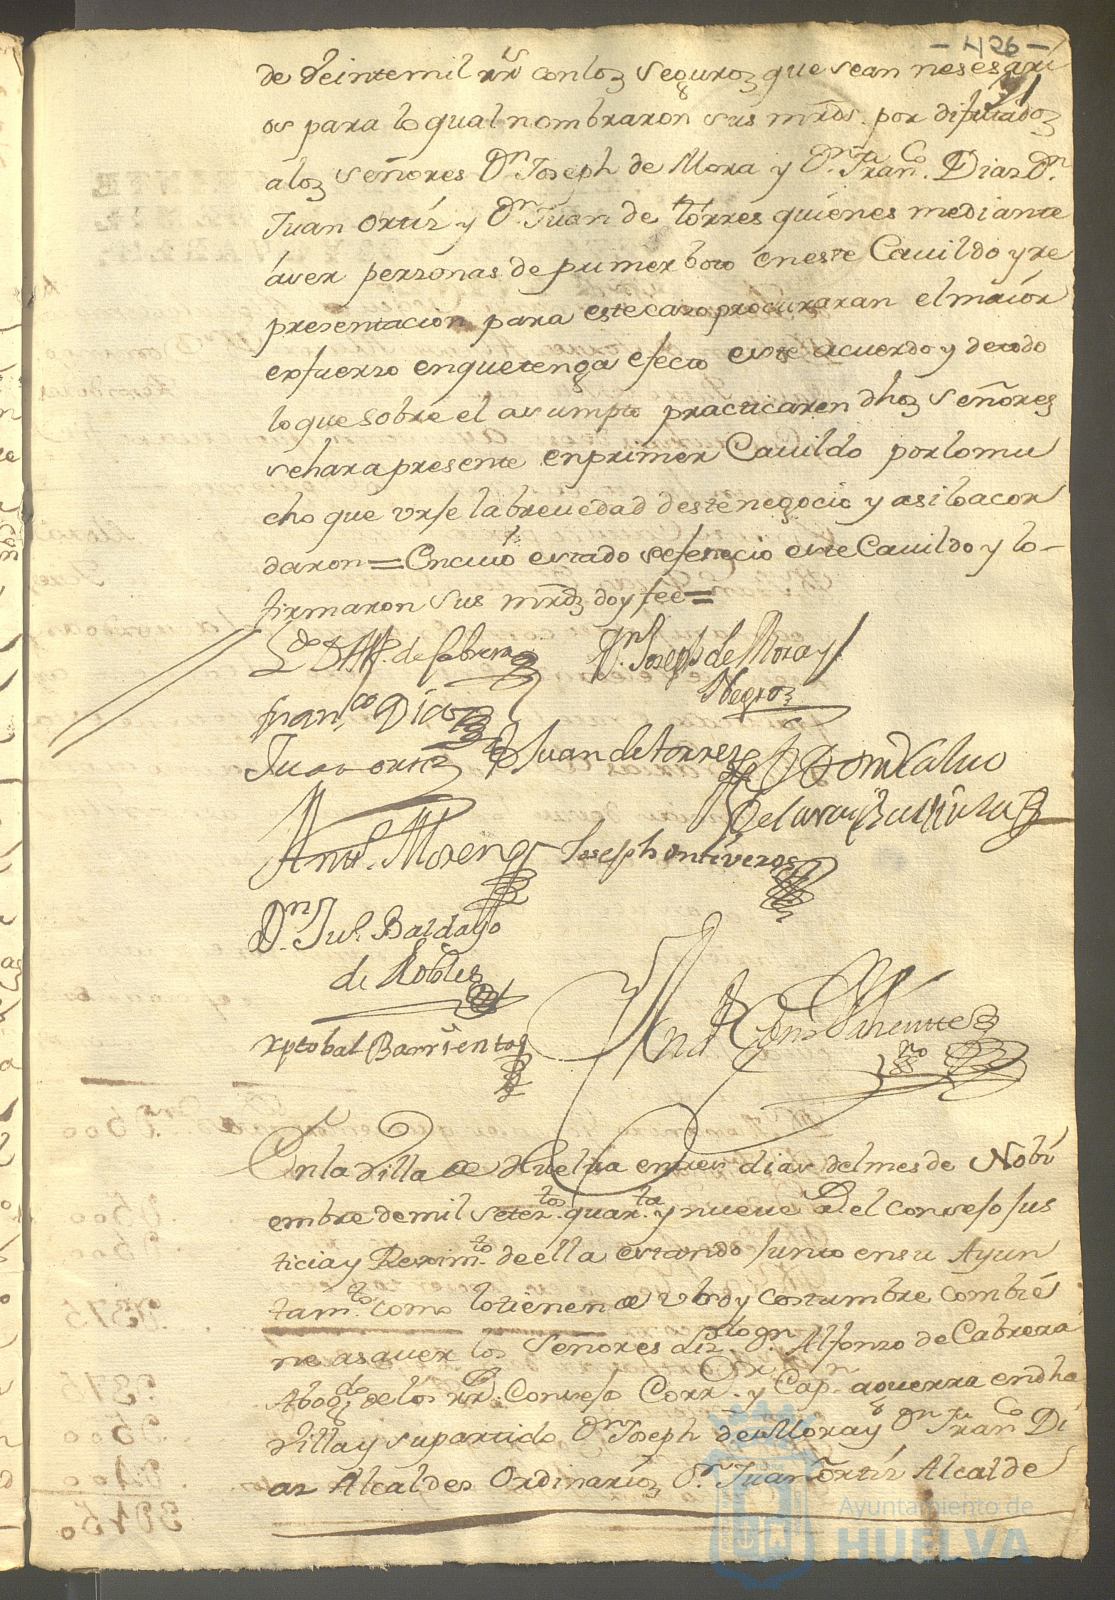 - 426 -
de Veintemil rrs. con los seguros que sean nesesari
os para lo qual nombraron sus mrds. por diputados
alos señores Dn. Joseph de Mora y Dn. Franco. Diaz Dn.
Juan Ortiz y Dn. Juan de torres quienes mediante
áver personas de primer boto en este Cavildo y re
presentacion para este caso procuraran el maior
esfuerzo en que tenga efecto este acuerdo y de todo
lo que sobre el asumpto practicaren dhos señores
se hara presente en primer Cavildo por lo mu
cho que urje la brevedad deste negocio y asi lo acor
daron = En cuio estado se fenecio este Cavildo y lo
firmaron sus mrds. doy fee =
Ldo. D. Alf. de Cabrera Dn. Joseph de Mora y
Negros
Franco. Diaz
Juan ortiz D Juan de torres
Anto. Moreno Joseph ontiveros
Dn. Jul. Baldayo
de Robles
xptobal Barrientos
En la Villa de Huelva en tres dias del mes de Nobi
embre de mil setezos. quarta. y nueve el Consejo Jus
ticia y Reximto. de ella estando junto en su Ayun
tamto. como lo tienen de Uso y costumbre combie
ne asaver los Señores Dn. Alfonso de Cabrera
Abogdo. de los rrs. Consejos Corrr. y Capn. a guerra en dha
Villa y su partido Dn. Joseph de Mora y Dn. Franco. Di
az Alcaldes Ordinarios Dn. Juan Ortiz Alcalde
Ayuntamiento de
HUELVA